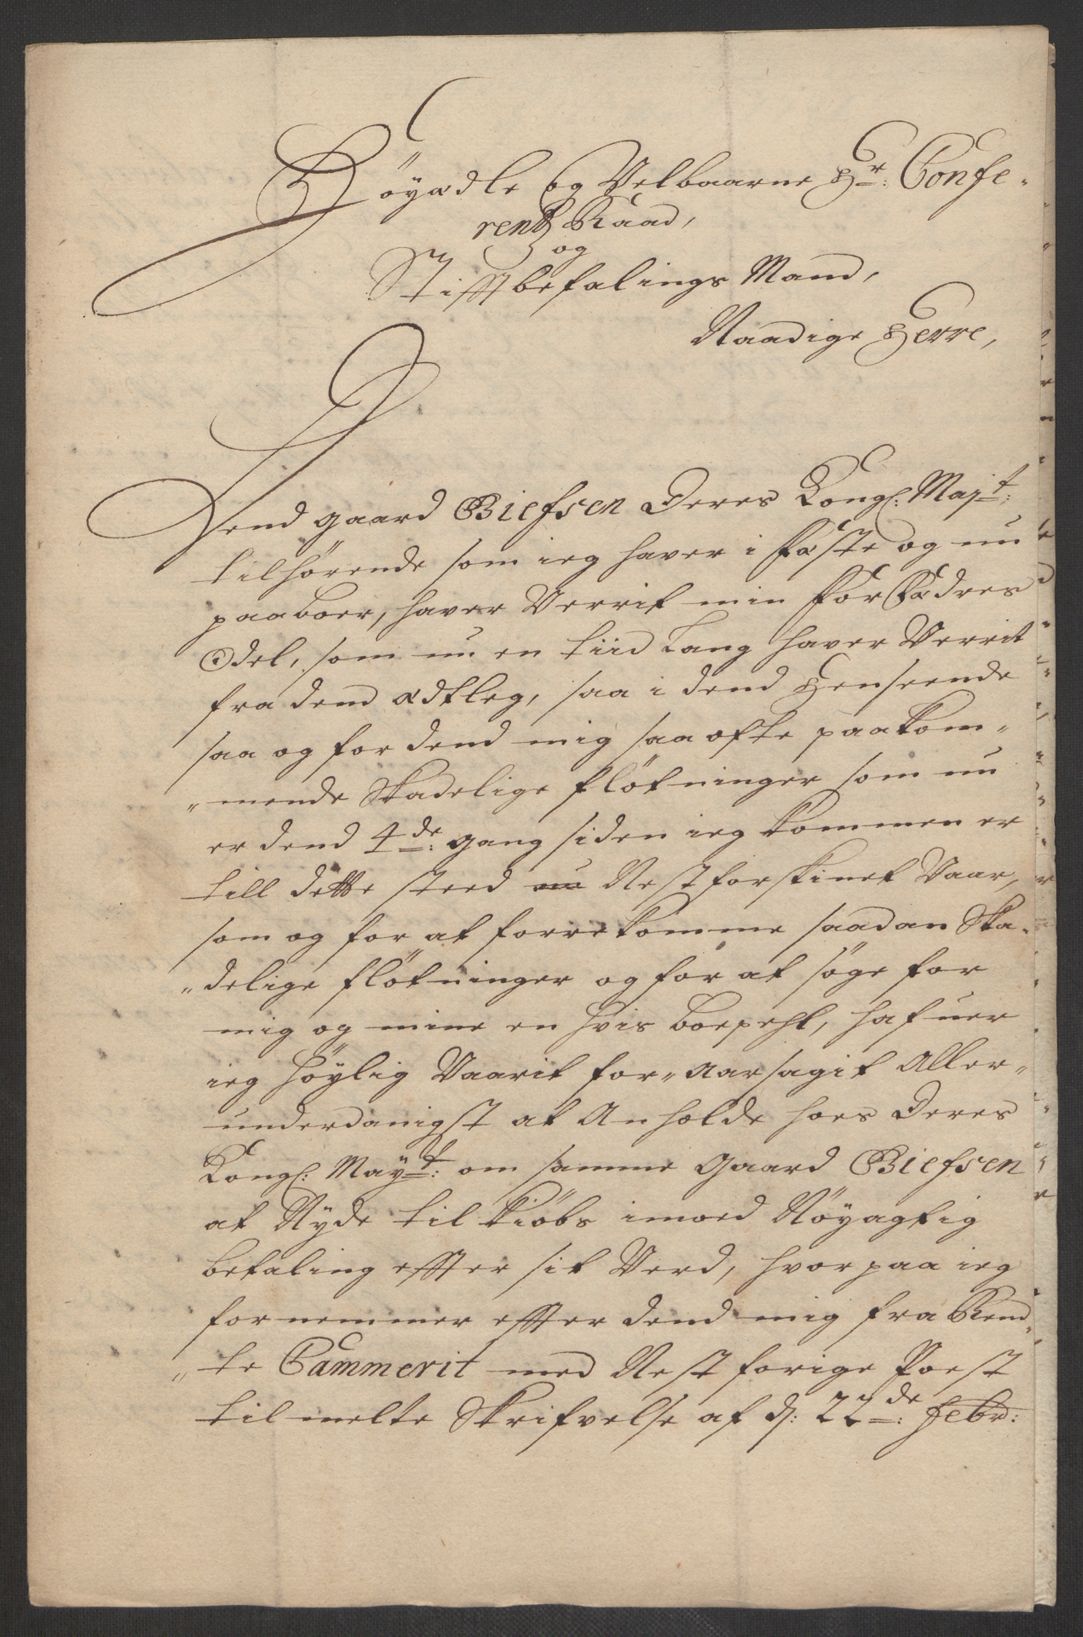 Höyædle og Velbaarne Hr: Confe-
rentz Raad,
og
Stifftbefalings Mand,
Naadige Herre,
Dend gaard Biefsen Deres Kongl: Majt:
tilhörende som ieg haver i fæste og nu
paaboer, haver Verrit min for Fædres
Odel, som nu en tiid lang haver Verrit
fra dend ædtleg, saa i dend Henseende
saa og for dend mig saa ofte paakom-
"mende Skadelige flötninger som nu
er dend 4de: gang siden ieg kommen er
till dette steed Nestforskinet Vaar,
som og for at forrekomme saadan Ska-
"delige flötninger og for at söge for
mig og mine en hvis boepehl, hafuer
ieg höylig Vaarit for-aarsagit Aller-
underdanigst at Anholde hoes Deres
Kongl: Mayt: om samme Gaard Biefsen
at Nyde til kiöbs imoed Nöyagtig
betaling effter sit Verd, hvorpaa ieg
fornemmer effter dend mig fra Rend-
"te Cammerit med Nest forige Poest
til melte Skrifvelse af d: 22de: Febr: